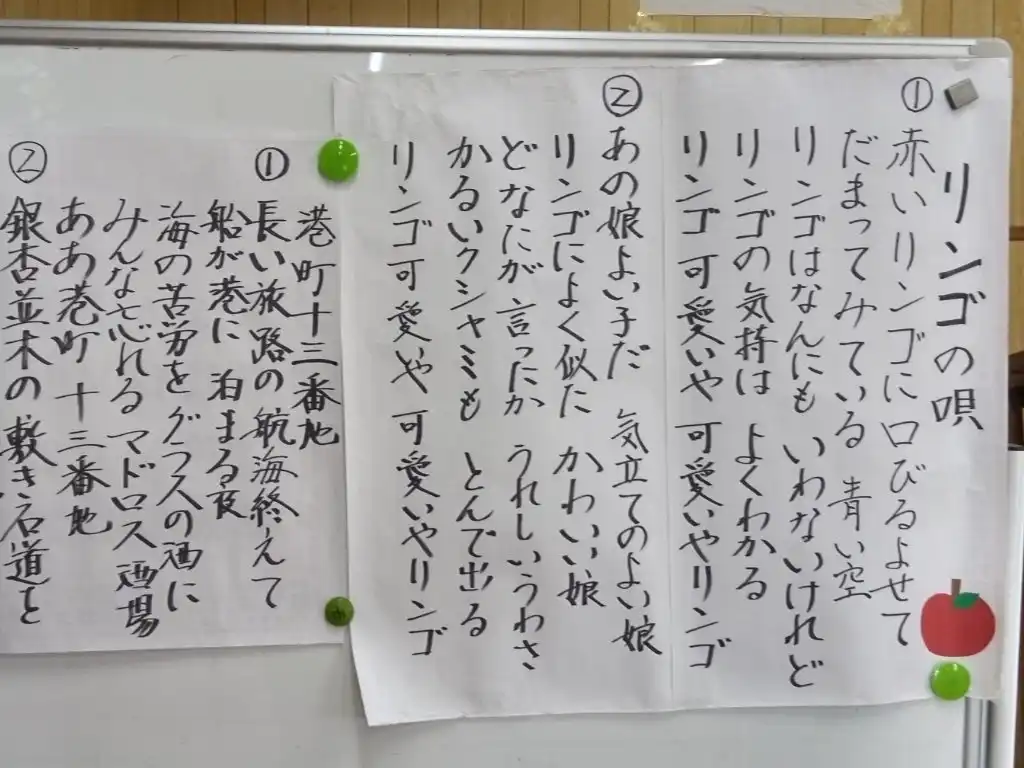 リンゴの唄
① 赤いリンゴに口びるよせて
だまってみている 青い空
リンゴはなんにも いわないけれど
リンゴの気持は よくわかる
リンゴ 可愛いや 可愛いやリンゴ
② あの娘よい子だ 気立てのよい娘
リンゴによく似た かわいい娘
どなたが言ったか うれしいうわさ
かるいクシャミも とんで出る
リンゴ可愛や 可愛いやリンゴ
港町十三番地
① 長い旅路の航海終えて
船が港に 泊まる夜
海の苦労をグラスの酒に
みんな忘れる マドロス酒場
ああ港町 十三番地
② 銀杏並木の 敷き石道を